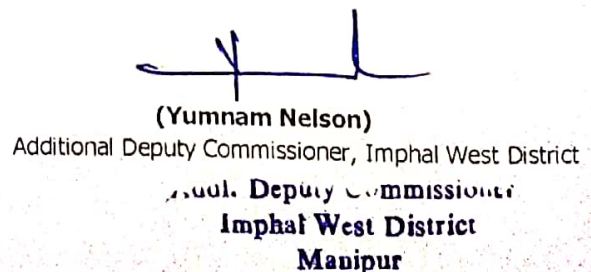 (Yumnam Nelson)
Additional Deputy Commissioner, Imphal West District
Addl. Deputy Commissioner
Imphal West District
Manipur